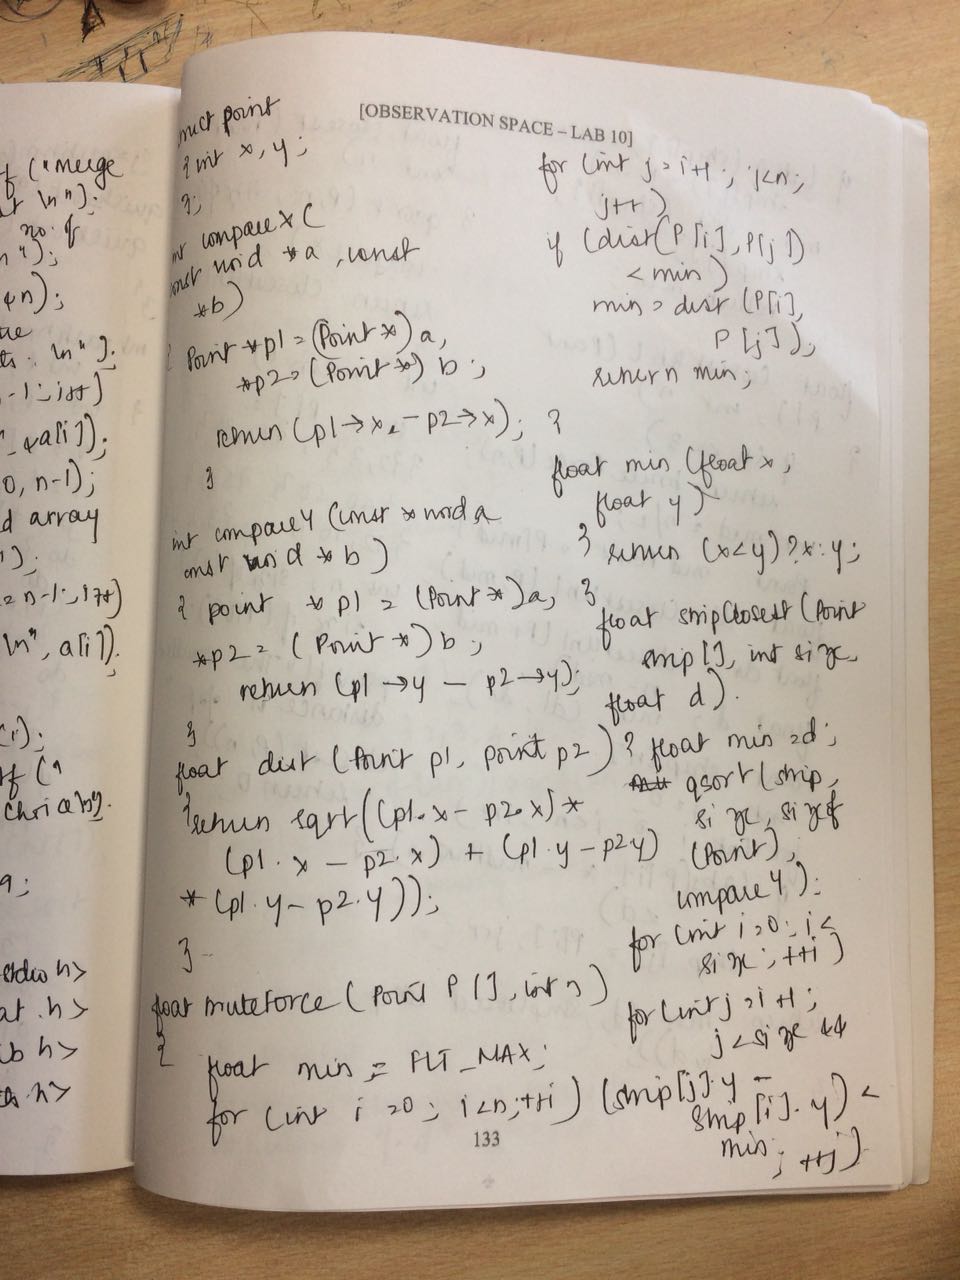 f ("Merge
at \n");
no. of
n");
&n);
ts : \n");
-1; i++)
&a[i]);
0, n-1);
d array
");
= n-1; i++)
\n", a[i]);
f ("
choice);
a;
stdio h>
at .h>
ib h>
th.h>
[OBSERVATION SPACE – LAB 10]
ruct point
{ int x, y;
};
int compare X (
onst void *a , const
*b)
{ Point *p1 = (Point *) a,
*p2 = (Point *) b ;
return (p1 → x - p2 → x);
}
int compare Y (const * void a
onst void * b )
{ point * p1 = (Point *) a,
*p2 = (Point *) b ;
return (p1 → y - p2 → y);
}
float dist (Point p1, point p2)
{ return sqrt((p1.x - p2.x) *
(p1.x - p2.x) + (p1.y - p2 y)
* (p1.y - p2.y));
}
float bruteForce (Point P [], int n)
{ float min = FLT_MAX;
for (int i = 0; i<n; ++i)
for (int j = i+1; j<n;
j++)
if (dist(P[i], P[j])
< min)
min = dist (P[i],
P [j]);
return min;
}
float min (float x,
float y)
{ return (x<y) ? x : y;
}
float strip Closest (Point
strip [], int size,
float d).
{ float min = d;
qsort (strip,
size, sizeof
(Point),
compare Y);
for (int i = 0; i <
size ; ++i)
for (int j = i+1;
j < size &&
(strip [j]. y -
strip [i]. y) <
min; ++j)
133